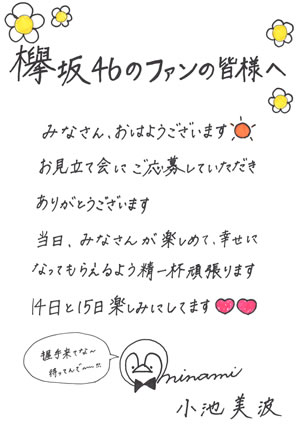 欅坂46のファンの皆様へ
みなさん、おはようございます
お見立て会にご応募していただき
ありがとうございます
当日、みなさんが楽しめて、幸せに
なってもらえるよう精一杯頑張ります
14日と15日楽しみにしてます
握手来てな〜
待ってんで〜!!
minami
小池美波